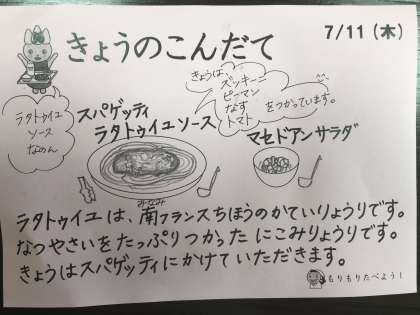 きょうのこんだて
7/11（木）
ラタトゥイユ
ソース
なのん
スパゲッティ
ラタトゥイユソース
きょうは、
ズッキーニ
ピーマン
なす
トマト
をつかっています。
マセドアンサラダ
みなみ
ラタトゥイユは、南フランスちほうのかていりょうりです。
なつやさいをたっぷりつかったにこみりょうりです。
きょうはスパゲッティにかけていただきます。
もりもりたべよう！